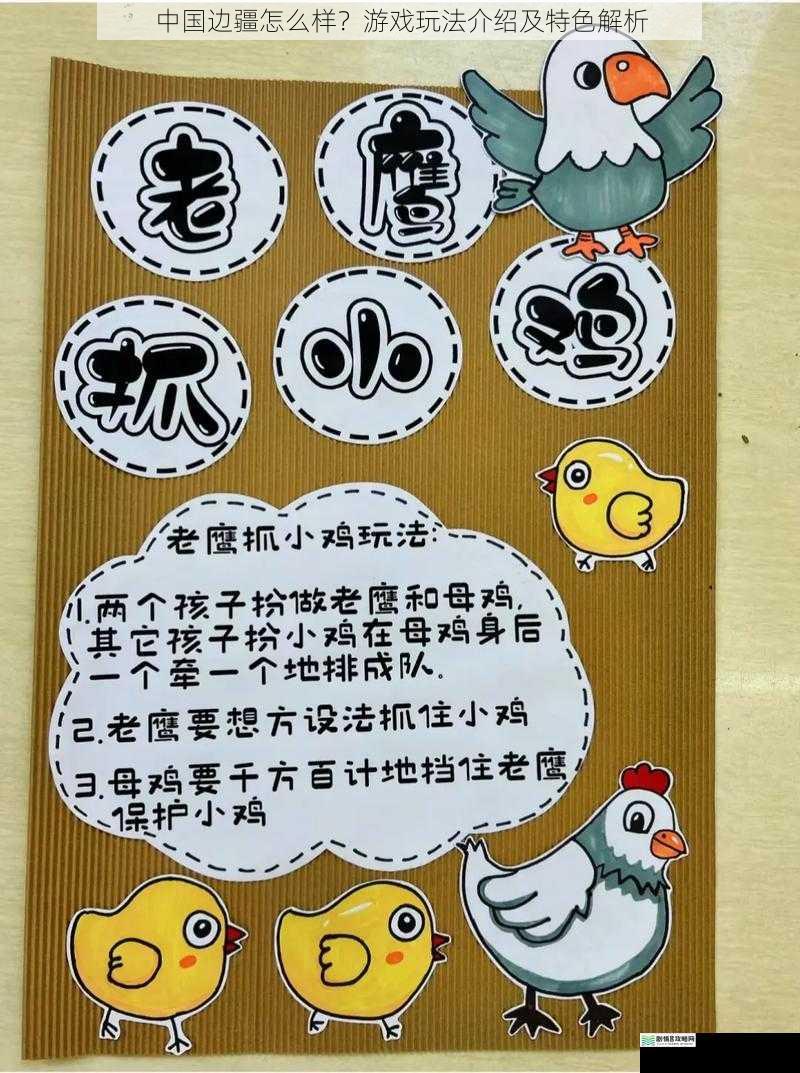 中国边疆怎么样？游戏玩法介绍及特色解析
老鹰
抓小鸡
老鹰抓小鸡玩法:
1.两个孩子扮做老鹰和母鸡,
其它孩子扮小鸡在母鸡身后
一个牵一个地排成队.
2.老鹰要想方设法抓住小鸡
3.母鸡要千方百计地挡住老鹰
保护小鸡
剧情攻略网